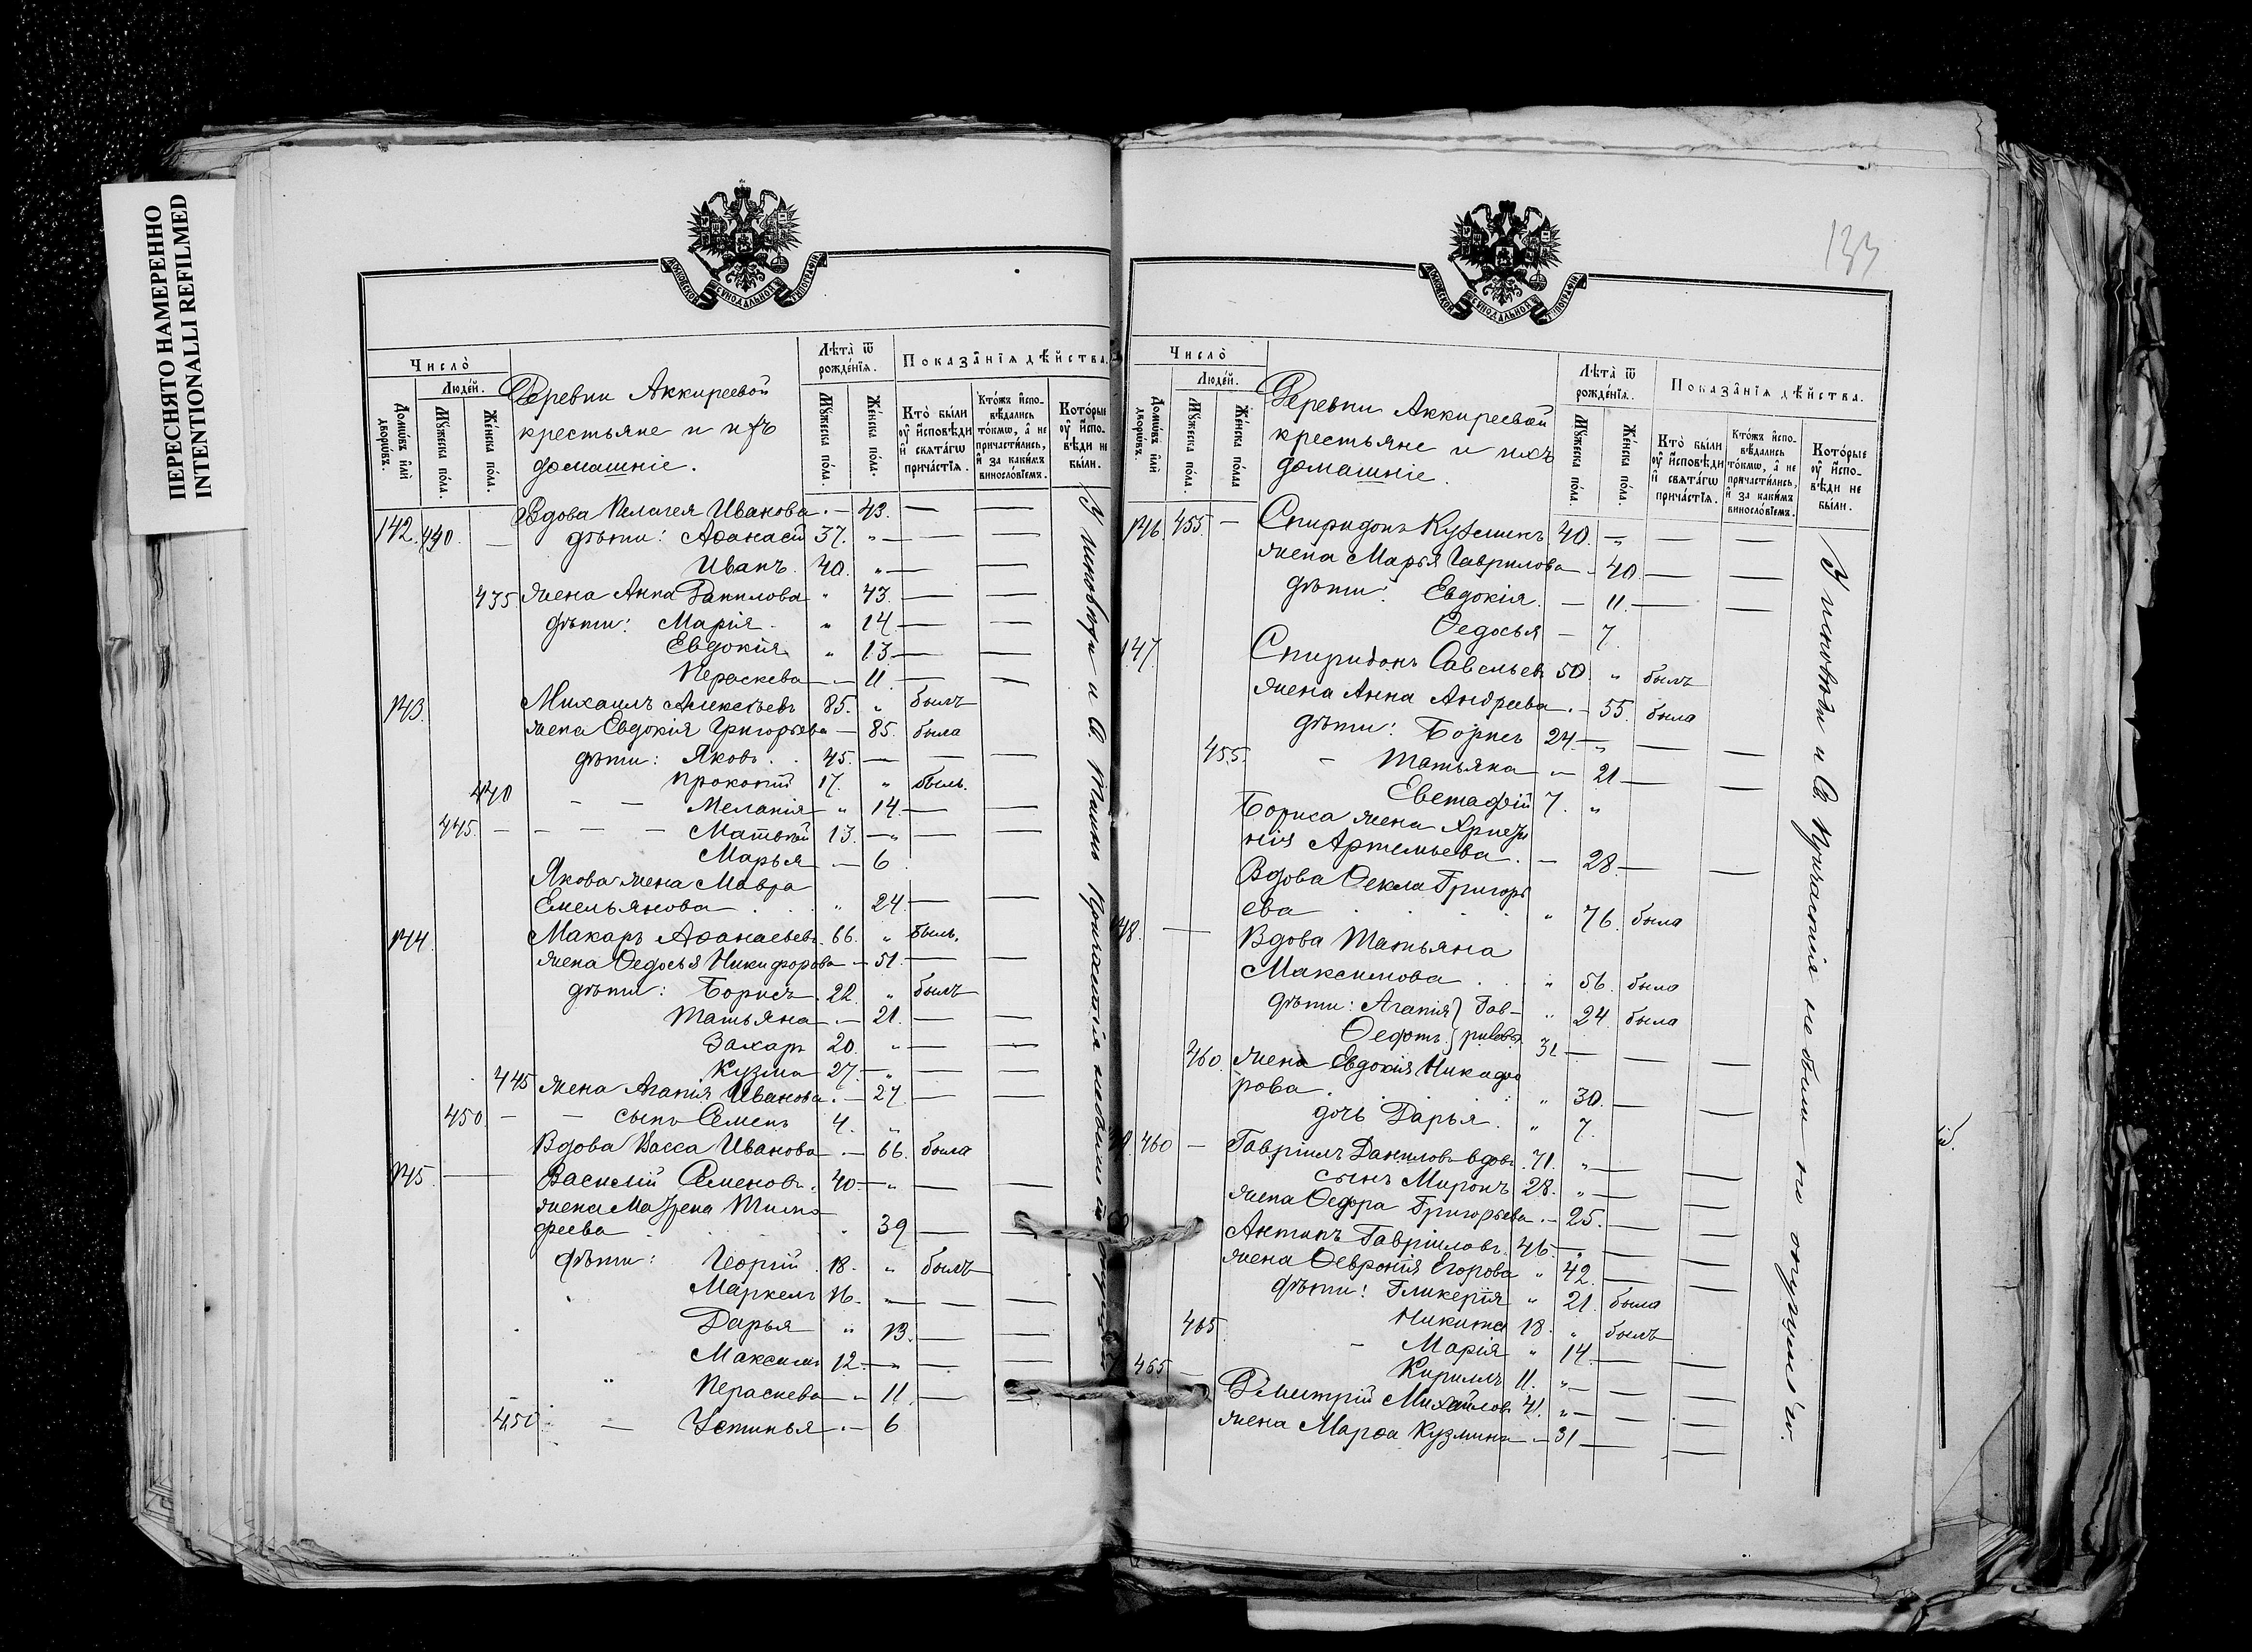 ПЕРЕСНЯТО НАМЕРЕННО
INTENTIONALLI REFILMED
МОСКОВСКОЙ СѴНОДАЛЬНОЙ ТѴПОГРАФІИ
Число̀
Людей.
Домѡ́въ илѝ дворѡ́въ.
Мꙋ́жеска по́ла.
Же́нска по́ла.
Деревни Аккиреевой
крестьяне и ихъ
домашніе.
Лѣта̀ ѿ рожде́нїѧ.
Мꙋ́жеска по́ла.
Же́нска по́ла.
Показа̑нїѧ дѣ́йства.
Кто̀ бы́ли ᲂу҆ и҆сповѣди и҆ свѧта́гѡ прича́стїѧ.
Кто́жъ и҆спо- вѣдались то́кмѡ, а҆ не причасти́лись, и҆ за каки́мъ виносло́вїемъ.
Кото́рые ᲂу҆ и҆спо- вѣди не бы́ли.
Вдова Пелагея Иванова. — 43. — —
142. 440. — дѣти: Аѳанасій 37. „ — — —
Иванъ. 40. „ — — —
435 жена Анна Данилова „ 43. — —
дѣти: Марія. „ 14. — —
Евдокія „ 13. — —
Пераскева — 11. — —
143. Михаилъ Алексѣевъ 85. „ былъ
жена Евдокія Григорьева — 85. была
дѣти: Яковъ. . 45. — — —
Прокопій 17. „ былъ.
440 — — Меланія „ 14. — —
445. — — — — Матвѣй 13. — „ — —
Марья — 6.
Якова жена Мавра
Емельянова „ 24. — —
144. Макаръ Аѳанасьевъ. 66. „ былъ.
жена Ѳедосья Никифорова — 51. — —
дѣти: Борисъ. 22. „ былъ
Татьяна — 21. — —
Захаръ 20. „ — — —
Кузма 27. — „ — —
445 жена Агапія Иванова. — 27. — —
450. — — сынъ Семенъ 4. „
Вдова Васса Иванова — 66. была
145. — Василій Семеновъ. 40. — „ — —
жена Матрена Тимо-
феева „ 39 — —
дѣти: Георгій. 18. „ былъ
Маркелъ 16. „ — — —
Дарья „ 13. — —
Максимъ 12. — „ — —
Пераскева — „ 11. — —
450 — Устинья — 6
У исповѣди и Св. Таинъ Причастія небыли по опущенію
133
МОСКОВСКОЙ СѴНОДАЛЬНОЙ ТѴПОГРАФІИ
Число̀
Людей.
Домѡ́въ илѝ дворѡ́въ.
Мꙋ́жеска по́ла.
Же́нска по́ла
Деревни Аккиреевой
крестьяне и ихъ
домашніе.
Лѣта̀ ѿ рожде́нїѧ.
Мꙋ́жеска по́ла.
Же́нска по́ла.
Показа̑нїѧ дѣ́йства.
Кто̀ бы́ли ᲂу҆ и҆сповѣди и҆ свѧта́гѡ прича́стїѧ.
Кто́жъ и҆спо- вѣдались то́кмѡ, а҆ не причасти́лись, и҆ за каки́мъ виносло́вїемъ.
Кото́рые ᲂу҆ и҆спо- вѣди не бы́ли.
146. 455. — Спиридонъ Кузминъ 40. — „ — —
жена Марья Гаврилова. 40. — —
дѣти: Евдокія. — 11. — —
Ѳедосья — 7.
147. Спиридонъ Савельевъ 50. „ былъ
жена Анна Андреева. — 55. была
дѣти: Борисъ 24. — „ — —
455. — Татьяна „ 21 — —
Евстафій 7. „
Бориса жена Хрис
нія Артемьева. — 28. — —
Вдова Ѳекла Григорь
ева „ 76. была
148. — Вдова Татьяна
Максимова „ 56. была
дѣти: Агапія Гав- „ 24. была
Ѳедотъ риловы 31 — — —
460. жена Евдокія Никифо
рова „ 30. — —
дочь Дарья. „ 7.
460 — Гавріилъ Даниловъ вдовъ. 71. „ — —
сынъ Миронъ 28. „ — —
жена Ѳедора Григорьева. — 25. — —
Антипъ Гавріиловъ. 46. — „ — —
жена Ѳевронія Егорова „ 42. — —
дѣти: Гликерія „ 21. была
Никита 18. „ былъ
465. — Марія „ 14. — —
465 — Кириллъ 11. „ — — —
Дмитрій Михайловъ 41. „ — — —
жена Марѳа Кузмина — 31 — —
У исповѣди и Св. Причастія не были по опущенію.